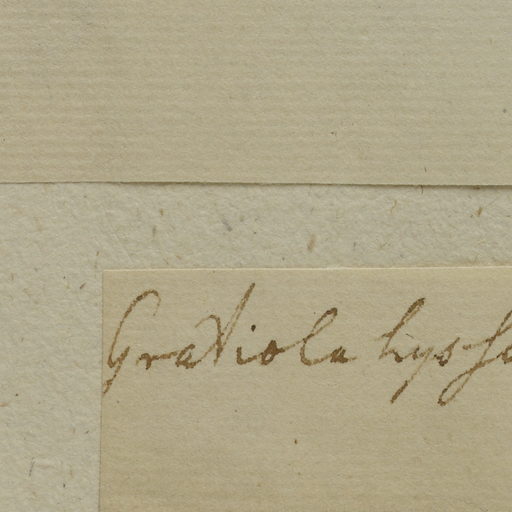 Gratiola hysso